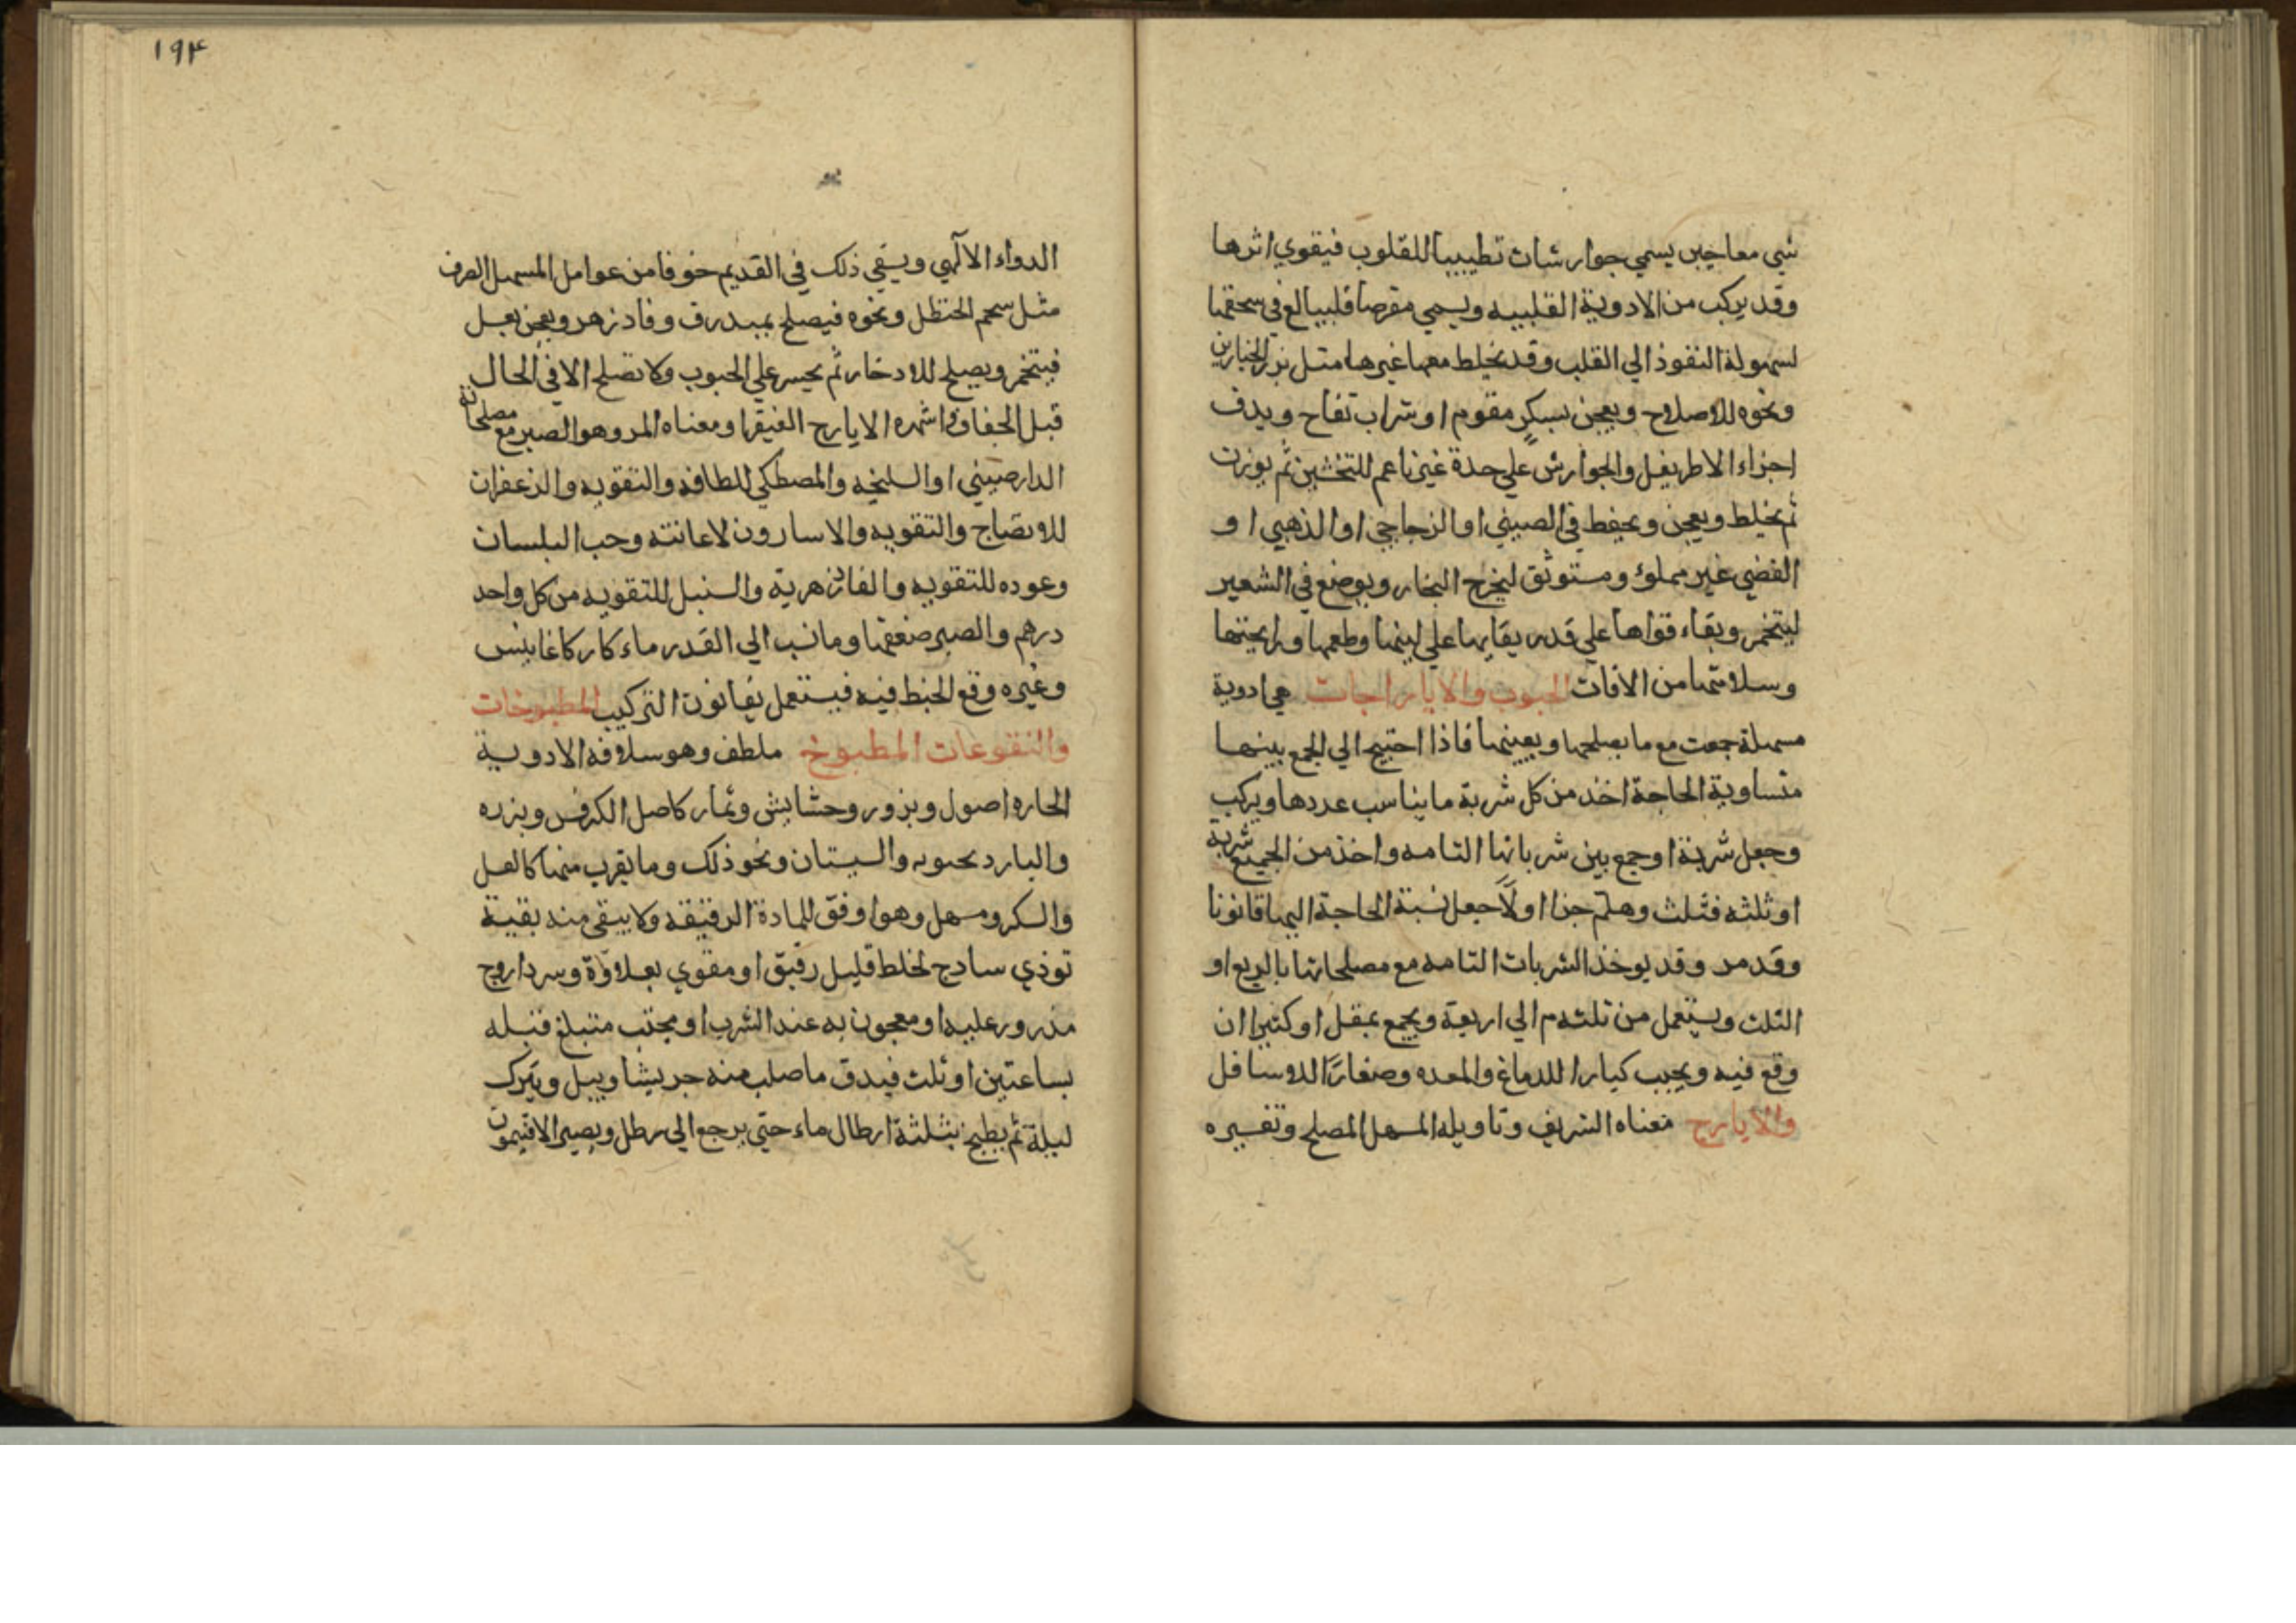 شي معاجين يسمي جوارشات تطييبا للقلوب فيقوي اثرها
وقد يركب من الادوية القلبيه ويسمي مفرحا قلبيا لغ في سحقها
لسهولة النفوذ الي القلب وقد يخلط معها غيرها مثل بزر الخيارين
ونحوه للاصلاح ويعجن بسكر مقوم او شراب تفاح ويدق
اجزاء الاطريفل والجوارش علي حدة غير ناعم للتخشين ثم يوزن
ثم يخلط ويعجن ويحفظ في الصيني او الزجاجي او الذهبي او
الفضي غير مملوء ومستوثق ليخرج البخار ويوضع في الشعير
ليتخمر وبقاء قواها علي قدر بقايها علي لينها وطعمها ورايحتها
وسلامتها من الافات الحبوب والايارجات هي ادوية
مسهلة جمعت مع ما يصلحها ويعينها فاذا احتيج الي الجمع بينها
متساوية الحاجة اخذ من كل شربة ما يناسب عددها ويركب
وجعل شربة او جمع بين شرباتها التامه واخذ من الجميع شربة
او ثلثه فثلث وهلم جرا اولا جعل نسبة الحاجة اليها قانونا
وقد مر وقد يوخذ الشربات التامه مع مصلحاتها بالربع او
الثلث ويستعمل من ثلثه م الي اربعة ويجمع بمقل او كثيرا ان
وقع فيه ويحبب كبارا للدماغ والمعده وصغارا للاسافل
والايارج معناه الشريف وتاويله المسهل المصلح وتفسيره
۱۹۴
الدواء الالهي ويسقي ذلك في القديم خوفا من عوامل المسهل الصرف
مثل شحم الحنظل ونحوه فيصلح بمبدرق وفادزهر ويعجن بعسل
فيتخمر ويصلح للادخار ثم يحبب علي الحبوب ولا تصلح الا في الحال
قبل الجفاف واشهره الايارج الفيقرا ومعناه المر وهو الصبر مع مصلحاته
الدارصيني او السليخه والمصطكي للطافه والتقويه والزعفران
للانضاج والتقويه والاسارون لاعانته وحب البلسان
وعوده للتقويه والفاذزهرية والسنبل للتقويه من كل واحد
درهم والصبر ضعفها وما نسب الي القدر ماء كاركاغانيس
وغيره وقع الخبط فيه فيستعمل بقانون التركيب المطبوخات
والنقوعات المطبوخ ملطف وهو سلافه الادوية
الحاره اصول وبزور وحشايش وثمار كاصل الكرفس وبزره
والبارد بحبوبه والسبستان ونحو ذلك وما يقرب منها كالعسل
والسكر ومسهل وهو اوفق للمادة الرقيقه ولا يبقي منه بقية
توذي سادج لخلط قليل رقيق او مقوي بعلاوة وسرداروج
مذرور عليه او معجون به عند الشرب او مجتنب متبلغ قبله
بساعتين او ثلث فيدق ما صلب منه جريشا ويبل ويترك
ليلة ثم يطبخ بثلثة ارطال ماء حتي يرجع الي رطل ويصير الافتيمون